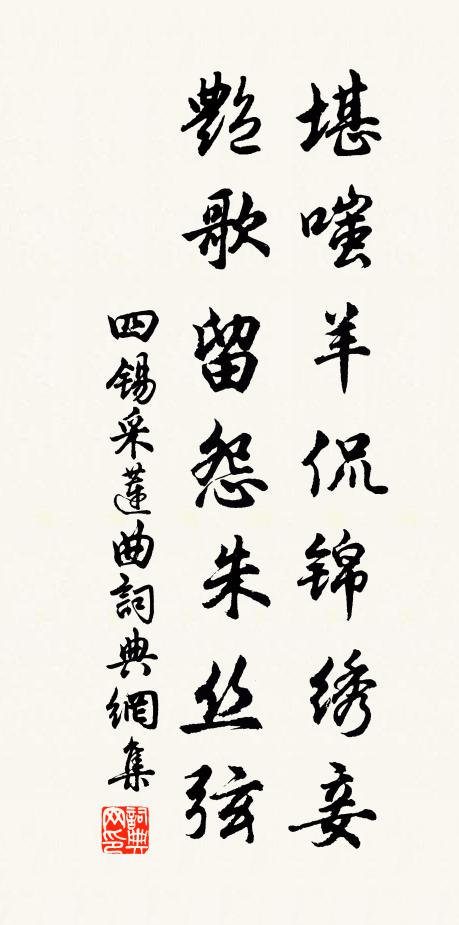 堪嗤羊侃锦绣妾
艳歌留怨朱丝弦
四锡采莲曲詞典網集
詞典网印